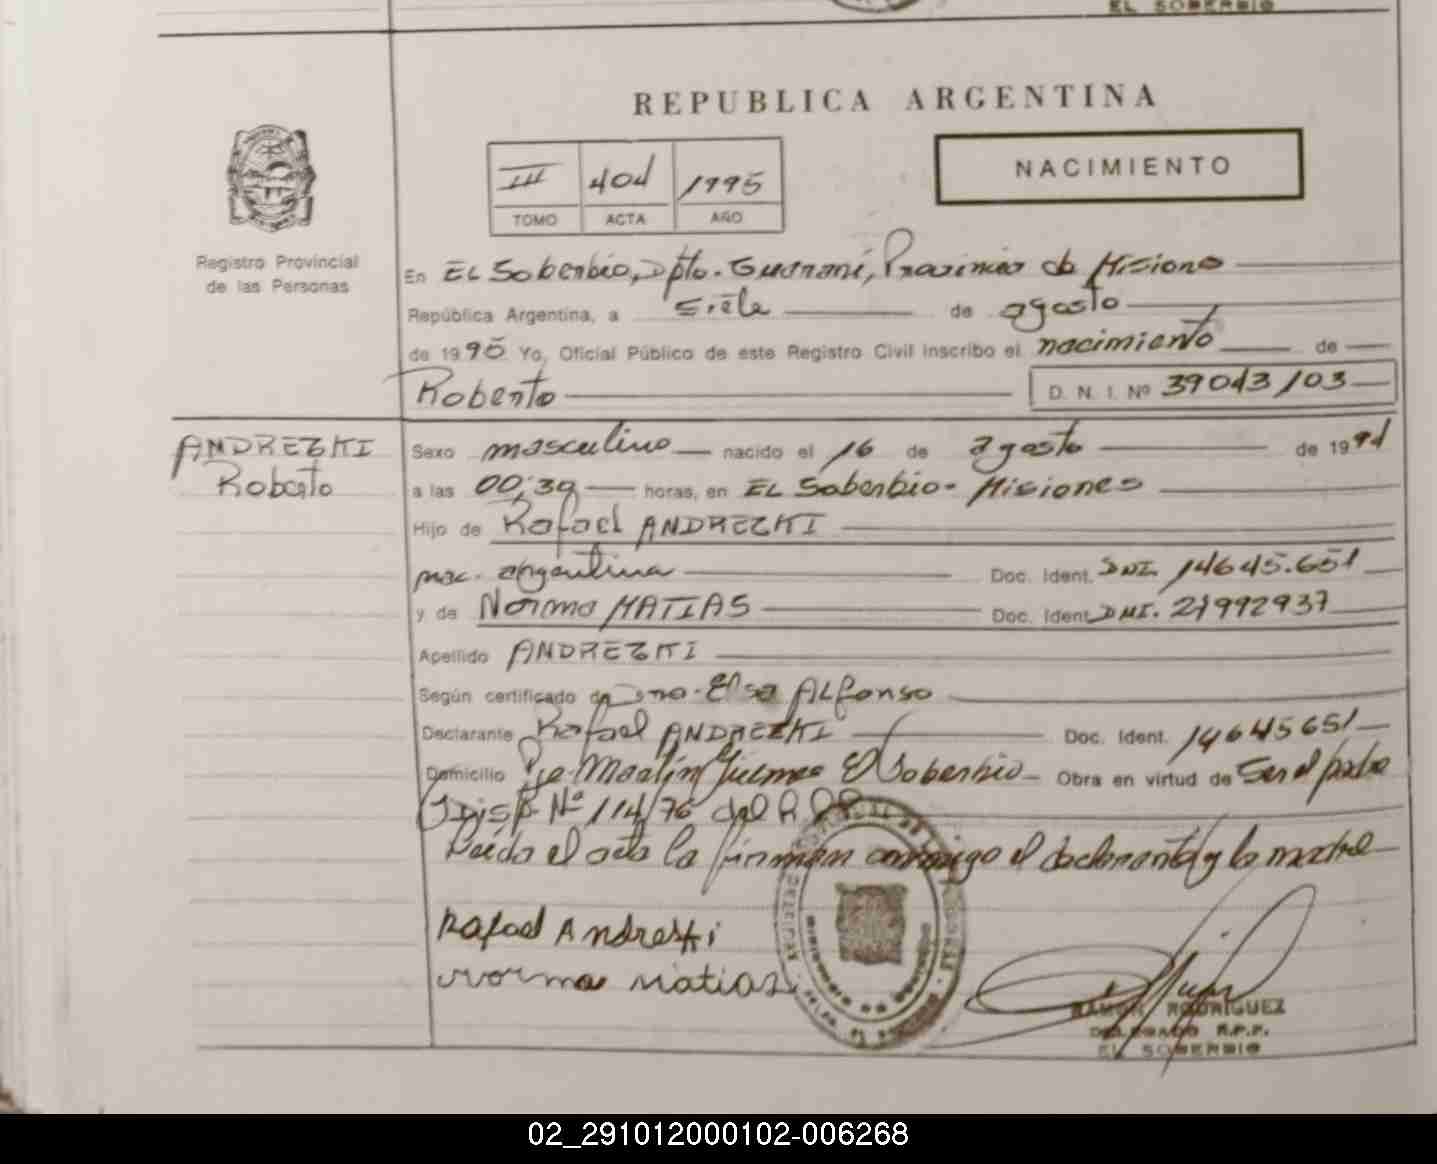 EL SOBERBIO
REPUBLICA ARGENTINA
III 404 1995
TOMO ACTA AÑO
NACIMIENTO
Registro Provincial
de las Personas
En EL Soberbio, Dpto. Guaraní, Provincia de Misiones
República Argentina, a siete de agosto
de 1995 Yo, Oficial Público de este Registro Civil inscribo el nacimiento de
Roberto D. N. I. Nº
ANDREZKI
Roberto
Sexo masculino nacido el 16 de agosto de 1994
a las 00,30 horas, en EL Soberbio - Misiones
Hijo de Rafael ANDREZKI
nac. argentina Doc. Ident. DNI. 14645.651
y de Norma MATIAS Doc. Ident. DNI. 21992937
Apellido ANDREZKI
Según certificado de Elsa ALfonso
Declarante Rafael ANDREZKI Doc. Ident. 14645651
Domicilio Martín Guemes El Soberbio Obra en virtud de Ser el padre
Disp. Nº 114/76 del R.P.P.
Leída el acta la firman conmigo el declarante y la madre
Rafael Andreski
Norma Matias
RAMON RODRIGUEZ
DELEGADO R.P.P.
EL SOBERBIO
02_291012000102-006268